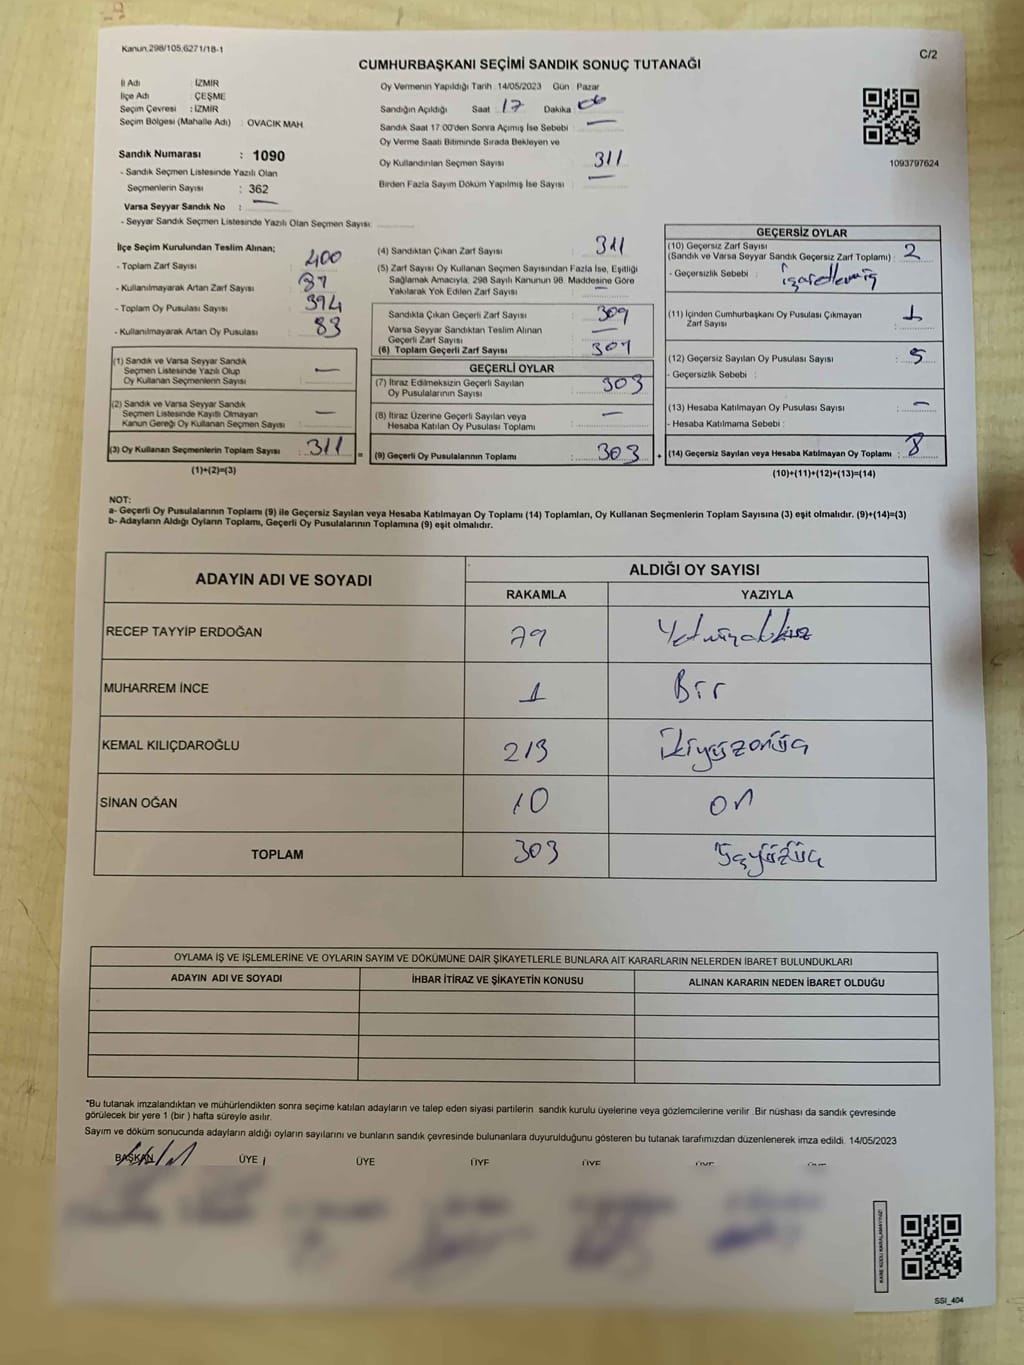 Kanun,298/105,6271/18-1
C/2
CUMHURBAŞKANI SEÇİMİ SANDIK SONUÇ TUTANAĞI
İl Adı : İZMİR
İlçe Adı : ÇEŞME
Seçim Çevresi : İZMİR
Seçim Bölgesi (Mahalle Adı) : OVACIK MAH
Sandık Numarası : 1090
- Sandık Seçmen Listesinde Yazılı Olan
Seçmenlerin Sayısı : 362
Varsa Seyyar Sandık No : —
- Seyyar Sandık Seçmen Listesinde Yazılı Olan Seçmen Sayısı:
Oy Vermenin Yapıldığı Tarih :14/05/2023 Gün Pazar
Sandığın Açıldığı Saat 17 Dakika
Sandık Saat 17:00'den Sonra Açımış İse Sebebi : —
Oy Verme Saati Bitiminde Sırada Bekleyen ve
Oy Kullandırılan Seçmen Sayısı 311
Birden Fazla Sayım Döküm Yapılmış İse Sayısı : —
1093797624
İlçe Seçim Kurulundan Teslim Alınan;
- Toplam Zarf Sayısı : 400
- Kullanılmayarak Artan Zarf Sayısı :
- Toplam Oy Pusulası Sayısı : 394
- Kullanılmayarak Artan Oy Pusulası : 83
(1) Sandık ve Varsa Seyyar Sandık
Seçmen Listesinde Yazılı Olup
Oy Kullanan Seçmenlerin Sayısı : —
(2) Sandık ve Varsa Seyyar Sandık
Seçmen Listesinde Kayıtlı Olmayan
Kanun Gereği Oy Kullanan Seçmen Sayısı : —
(3) Oy Kullanan Seçmenlerin Toplam Sayısı : 311
(1)+(2)=(3)
(4) Sandıktan Çıkan Zarf Sayısı : 311
(5) Zarf Sayısı Oy Kullanan Seçmen Sayısından Fazla İse, Eşitliği
Sağlamak Amacıyla, 298 Sayılı Kanunun 98. Maddesine Göre
Yakılarak Yok Edilen Zarf Sayısı : —
Sandıkta Çıkan Geçerli Zarf Sayısı : 309
Varsa Seyyar Sandıktan Teslim Alınan
Geçerli Zarf Sayısı : —
(6) Toplam Geçerli Zarf Sayısı : 309
GEÇERLİ OYLAR
(7) İtiraz Edilmeksizin Geçerli Sayılan
Oy Pusulalarının Sayısı : 303
(8) İtiraz Üzerine Geçerli Sayılan veya
Hesaba Katılan Oy Pusulası Toplamı : —
= (9) Geçerli Oy Pusulalarının Toplamı : 303
GEÇERSİZ OYLAR
(10) Geçersiz Zarf Sayısı
(Sandık ve Varsa Seyyar Sandık Geçersiz Zarf Toplamı) : 2
- Geçersizlik Sebebi : işaretlenmiş
(11) İçinden Cumhurbaşkanı Oy Pusulası Çıkmayan
Zarf Sayısı : 1
(12) Geçersiz Sayılan Oy Pusulası Sayısı : 5
- Geçersizlik Sebebi :
(13) Hesaba Katılmayan Oy Pusulası Sayısı : —
- Hesaba Katılmama Sebebi :
+ (14) Geçersiz Sayılan veya Hesaba Katılmayan Oy Toplamı : 8
(10)+(11)+(12)+(13)=(14)
NOT:
a- Geçerli Oy Pusulalarının Toplamı (9) ile Geçersiz Sayılan veya Hesaba Katılmayan Oy Toplamı (14) Toplamları, Oy Kullanan Seçmenlerin Toplam Sayısına (3) eşit olmalıdır. (9)+(14)=(3)
b- Adayların Aldığı Oyların Toplamı, Geçerli Oy Pusulalarının Toplamına (9) eşit olmalıdır.
ADAYIN ADI VE SOYADI ALDIĞI OY SAYISI
RAKAMLA YAZIYLA
RECEP TAYYİP ERDOĞAN 79 Yetmişdokuz
MUHARREM İNCE 1 Bir
KEMAL KILIÇDAROĞLU 213 ikiyüzonüç
SİNAN OĞAN 10 on
TOPLAM 303 üçyüzüç
OYLAMA İŞ VE İŞLEMLERİNE VE OYLARIN SAYIM VE DÖKÜMÜNE DAİR ŞİKAYETLERLE BUNLARA AİT KARARLARIN NELERDEN İBARET BULUNDUKLARI
ADAYIN ADI VE SOYADI İHBAR İTİRAZ VE ŞİKAYETİN KONUSU ALINAN KARARIN NEDEN İBARET OLDUĞU
"Bu tutanak imzalandıktan ve mühürlendikten sonra seçime katılan adayların ve talep eden siyasi partilerin sandık kurulu üyelerine veya gözlemcilerine verilir. Bir nüshası da sandık çevresinde
görülecek bir yere 1 (bir ) hafta süreyle asılır.
Sayım ve döküm sonucunda adayların aldığı oyların sayılarını ve bunların sandık çevresinde bulunanlara duyurulduğunu gösteren bu tutanak tarafımızdan düzenlenerek imza edildi. 14/05/2023
BAŞKAN ÜYE ÜYE ÜYE ÜYE
KARE KODU KARALAMAYINIZ!
SSI_404